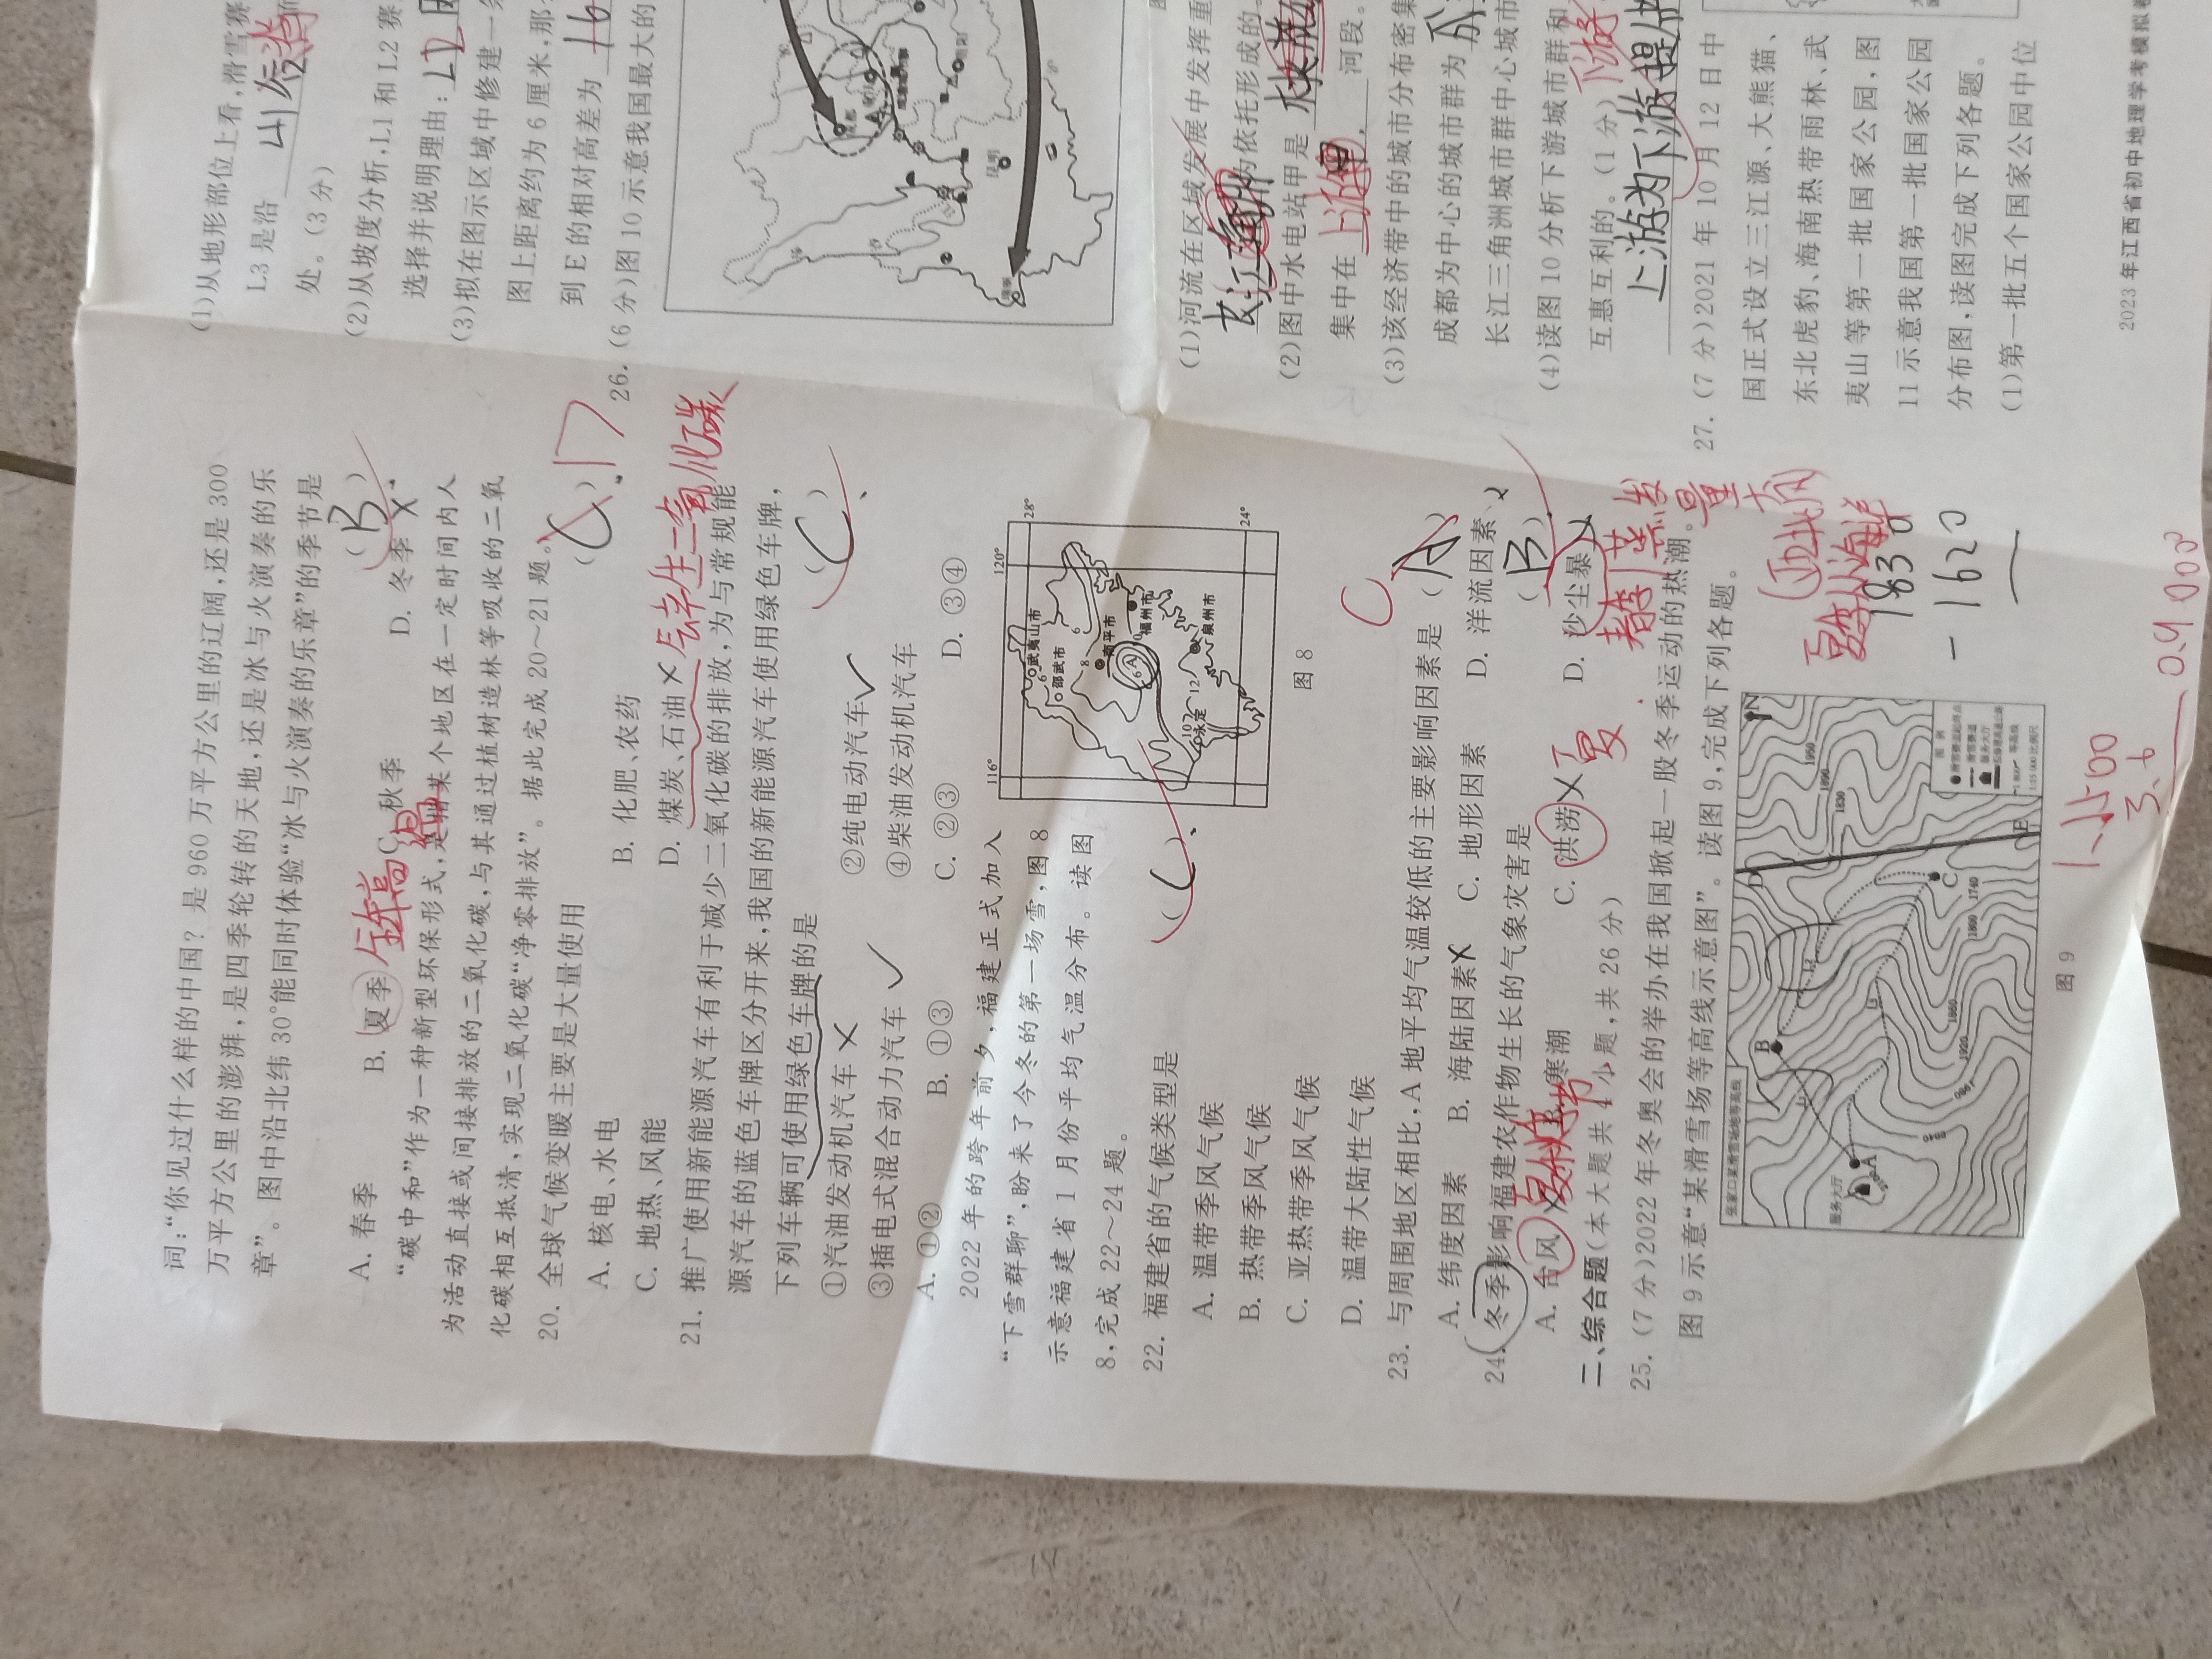 词:“你见过什么样的中国?是960万平方公里的辽阔,还是300
万平方公里的澎湃,是四季轮转的天地,还是冰与火演奏的乐
章”。图中沿北纬30°能同时体验“冰与火演奏的乐章”的季节是
(B)
A. 春季 B. 夏季 C. 秋季 D. 冬季
全年高温
“碳中和”作为一种新型环保形式,是指某个地区在一定时间内人
为活动直接或间接排放的二氧化碳,与其通过植树造林等吸收的二氧
化碳相互抵清,实现二氧化碳“净零排放”。据此完成20~21题。
20. 全球气候变暖主要是大量使用
A. 核电、水电 B. 化肥、农药
C. 地热、风能 D. 煤炭、石油
产生二氧化碳
21. 推广使用新能源汽车有利于减少二氧化碳的排放,为与常规能
源汽车的蓝色车牌区分开来,我国的新能源汽车使用绿色车牌,
下列车辆可使用绿色车牌的是 (C)
①汽油发动机汽车 ②纯电动汽车
③插电式混合动力汽车 ④柴油发动机汽车
A. ①② B. ①③ C. ②③ D. ③④
2022年的跨年前夕,福建正式加入
“下雪群聊”,盼来了今冬的第一场雪,图8
示意福建省1月份平均气温分布。读图
8,完成22~24题。
22. 福建省的气候类型是 (C)
A. 温带季风气候
B. 热带季风气候
C. 亚热带季风气候
D. 温带大陆性气候
116° 120°
28°
24°
武夷山市
邵武市
南平市
福州市
永定
泉州市
A
图8
23. 与周围地区相比,A地平均气温较低的主要影响因素是 (A)
C
A. 纬度因素 B. 海陆因素 C. 地形因素 D. 洋流因素
24. 冬季影响福建农作物生长的气象灾害是 (B)
A. 台风 B. 寒潮 C. 洪涝 D. 沙尘暴
夏秋季节
夏
春季
蒸发量大
二、综合题(本大题共4小题,共26分)
25. (7分)2022年冬奥会的举办在我国掀起一股冬季运动的热潮。
图9示意“某滑雪场等高线示意图”。读图9,完成下列各题。
张家口某滑雪场地等高线
服务大厅
A
B
C
D
E
1950
1890
1830
1740
1800
1860
1920
图例
图9
1830
- 1620
1:1500
3.6
(1)从地形部位上看,滑雪赛
L3是沿 山谷
处。(3分)
(2)从坡度分析,L1和L2赛
选择并说明理由:
(3)拟在图示区域中修建一条
图上距离约为6厘米,那
到E的相对高差为
26. (6分)图10示意我国最大的
(1)河流在区域发展中发挥重
依托形成的。
(2)图中水电站甲是
集中在 上游 河段。
(3)该经济带中的城市分布密集
成都为中心的城市群为
长江三角洲城市群中心城市
(4)读图10分析下游城市群和
互惠互利的。(1分)
上游为下游提供
27. (7分)2021年10月12日中
国正式设立三江源、大熊猫、
东北虎豹、海南热带雨林、武
夷山等第一批国家公园,图
11示意我国第一批国家公园
分布图,读图完成下列各题。
(1)第一批五个国家公园中位
2023年江西省初中地理学考模拟卷